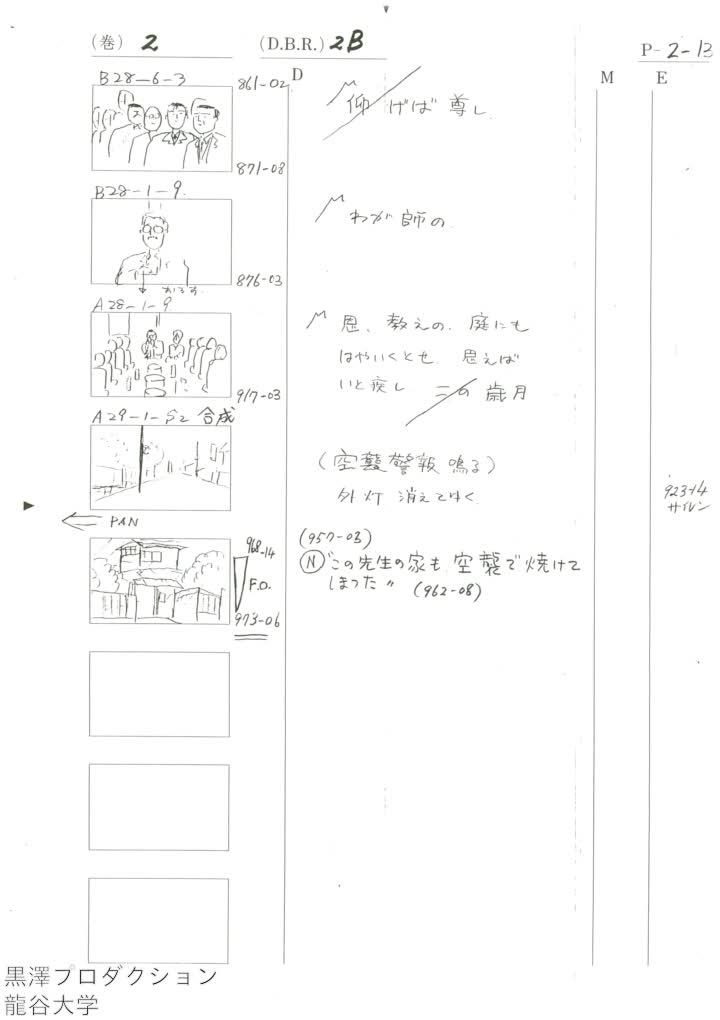 (巻) 2
(D.B.R.) 2B
P-2-13
D
M
E
B28-6-3
861-02
仰げば尊し
871-08
B28-1-9
わが師の
876-03
A28-1-9
恩、教えの、庭にも
はやいくとせ 思えば
いと疾し この歳月
917-03
A29-1-S2 合成
(空襲警報鳴る)
外灯 消えてゆく
923-14
サイレン
PAN
(957-03)
968-14
Ⓝ "この先生の家も、空襲で焼けて
しまった" (962-08)
F.O.
973-06
黒澤プロダクション
龍谷大学